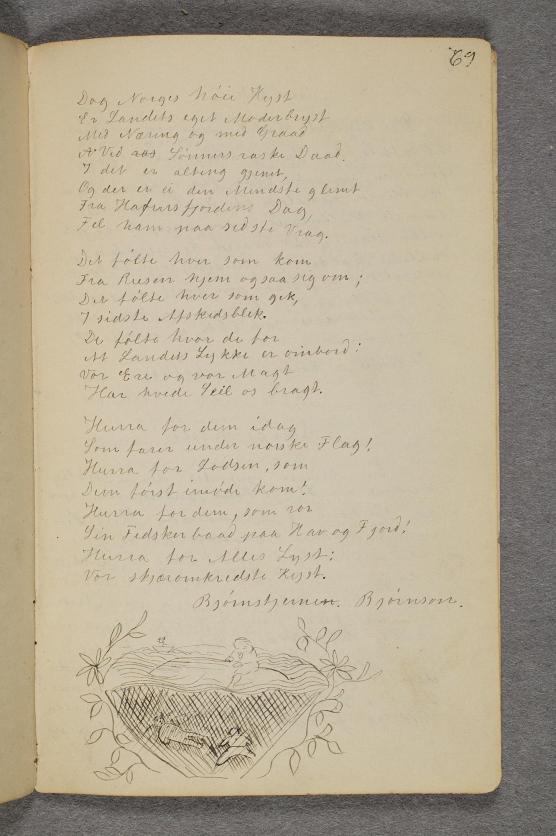 69
Dog Norges høie Kyst
Er Landets eget Moderbryst
Med Næring og med Graad
Ved Sønners raske Daad.
I det er alting gjemt,
Og der er ei den Mindste glemt
Fra Hafursfjordens Dag,
Til ham paa sidste Vrag.
Det følte hver som kom
Fra Reisen hjem og saa sig om;
Det følte hver som gik,
I sidste Afskedsblik.
De følte hvor de for
At Landets Lykke er ombord:
Vor Ere og vor Magt
Har hvide Seil os bragt.
Hurra for dem idag
Som farer under norske Flag!
Hurra for Lodsen, som
Dem først imøde kom!
Hurra for dem, som ror
Sin Fiskerbaad paa Hav og Fjord!
Hurra for Alles Lyst:
Vor skjæromkredste Kyst.
Bjørnstjerne. Bjørnson.